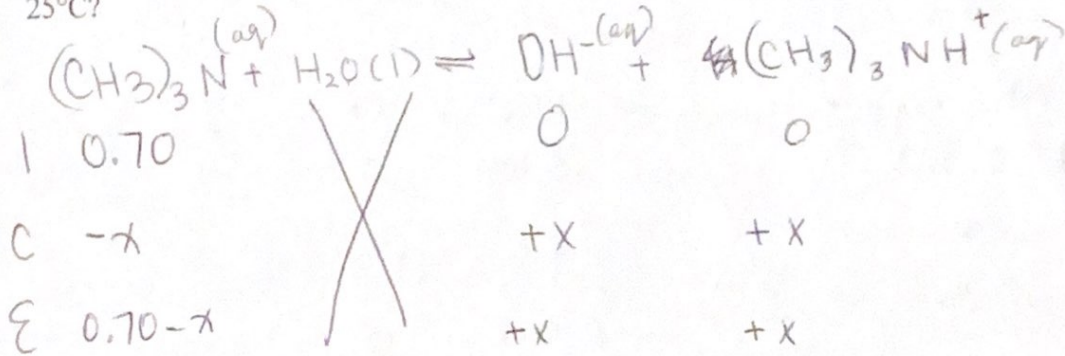 25°C?
(CH3)3 N(aq) + H₂O(l) ⇌ OH⁻(aq) + (CH₃)₃NH⁺(aq)
I 0.70 0 0
C -x +x +x
E 0.70-x +x +x